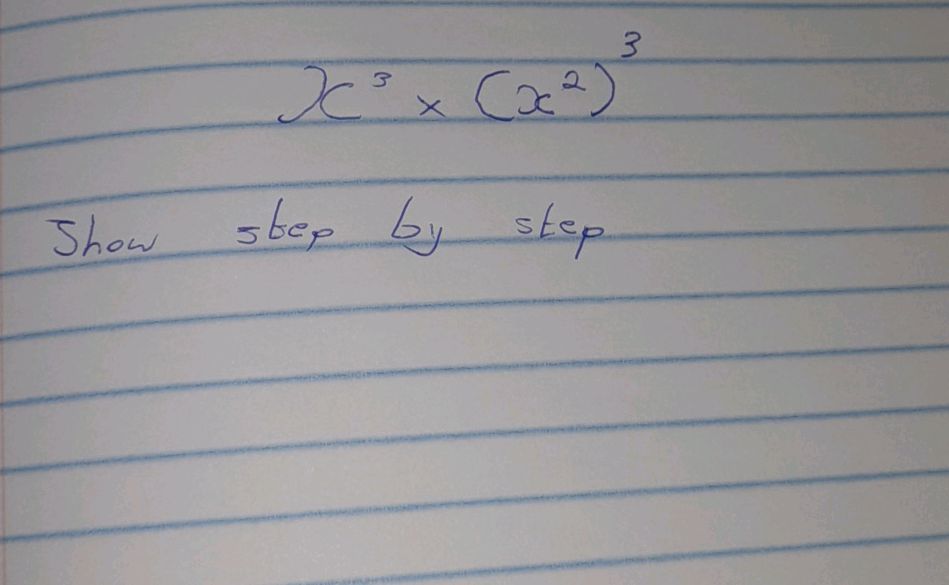 x³ × (x²)³
Show step by step